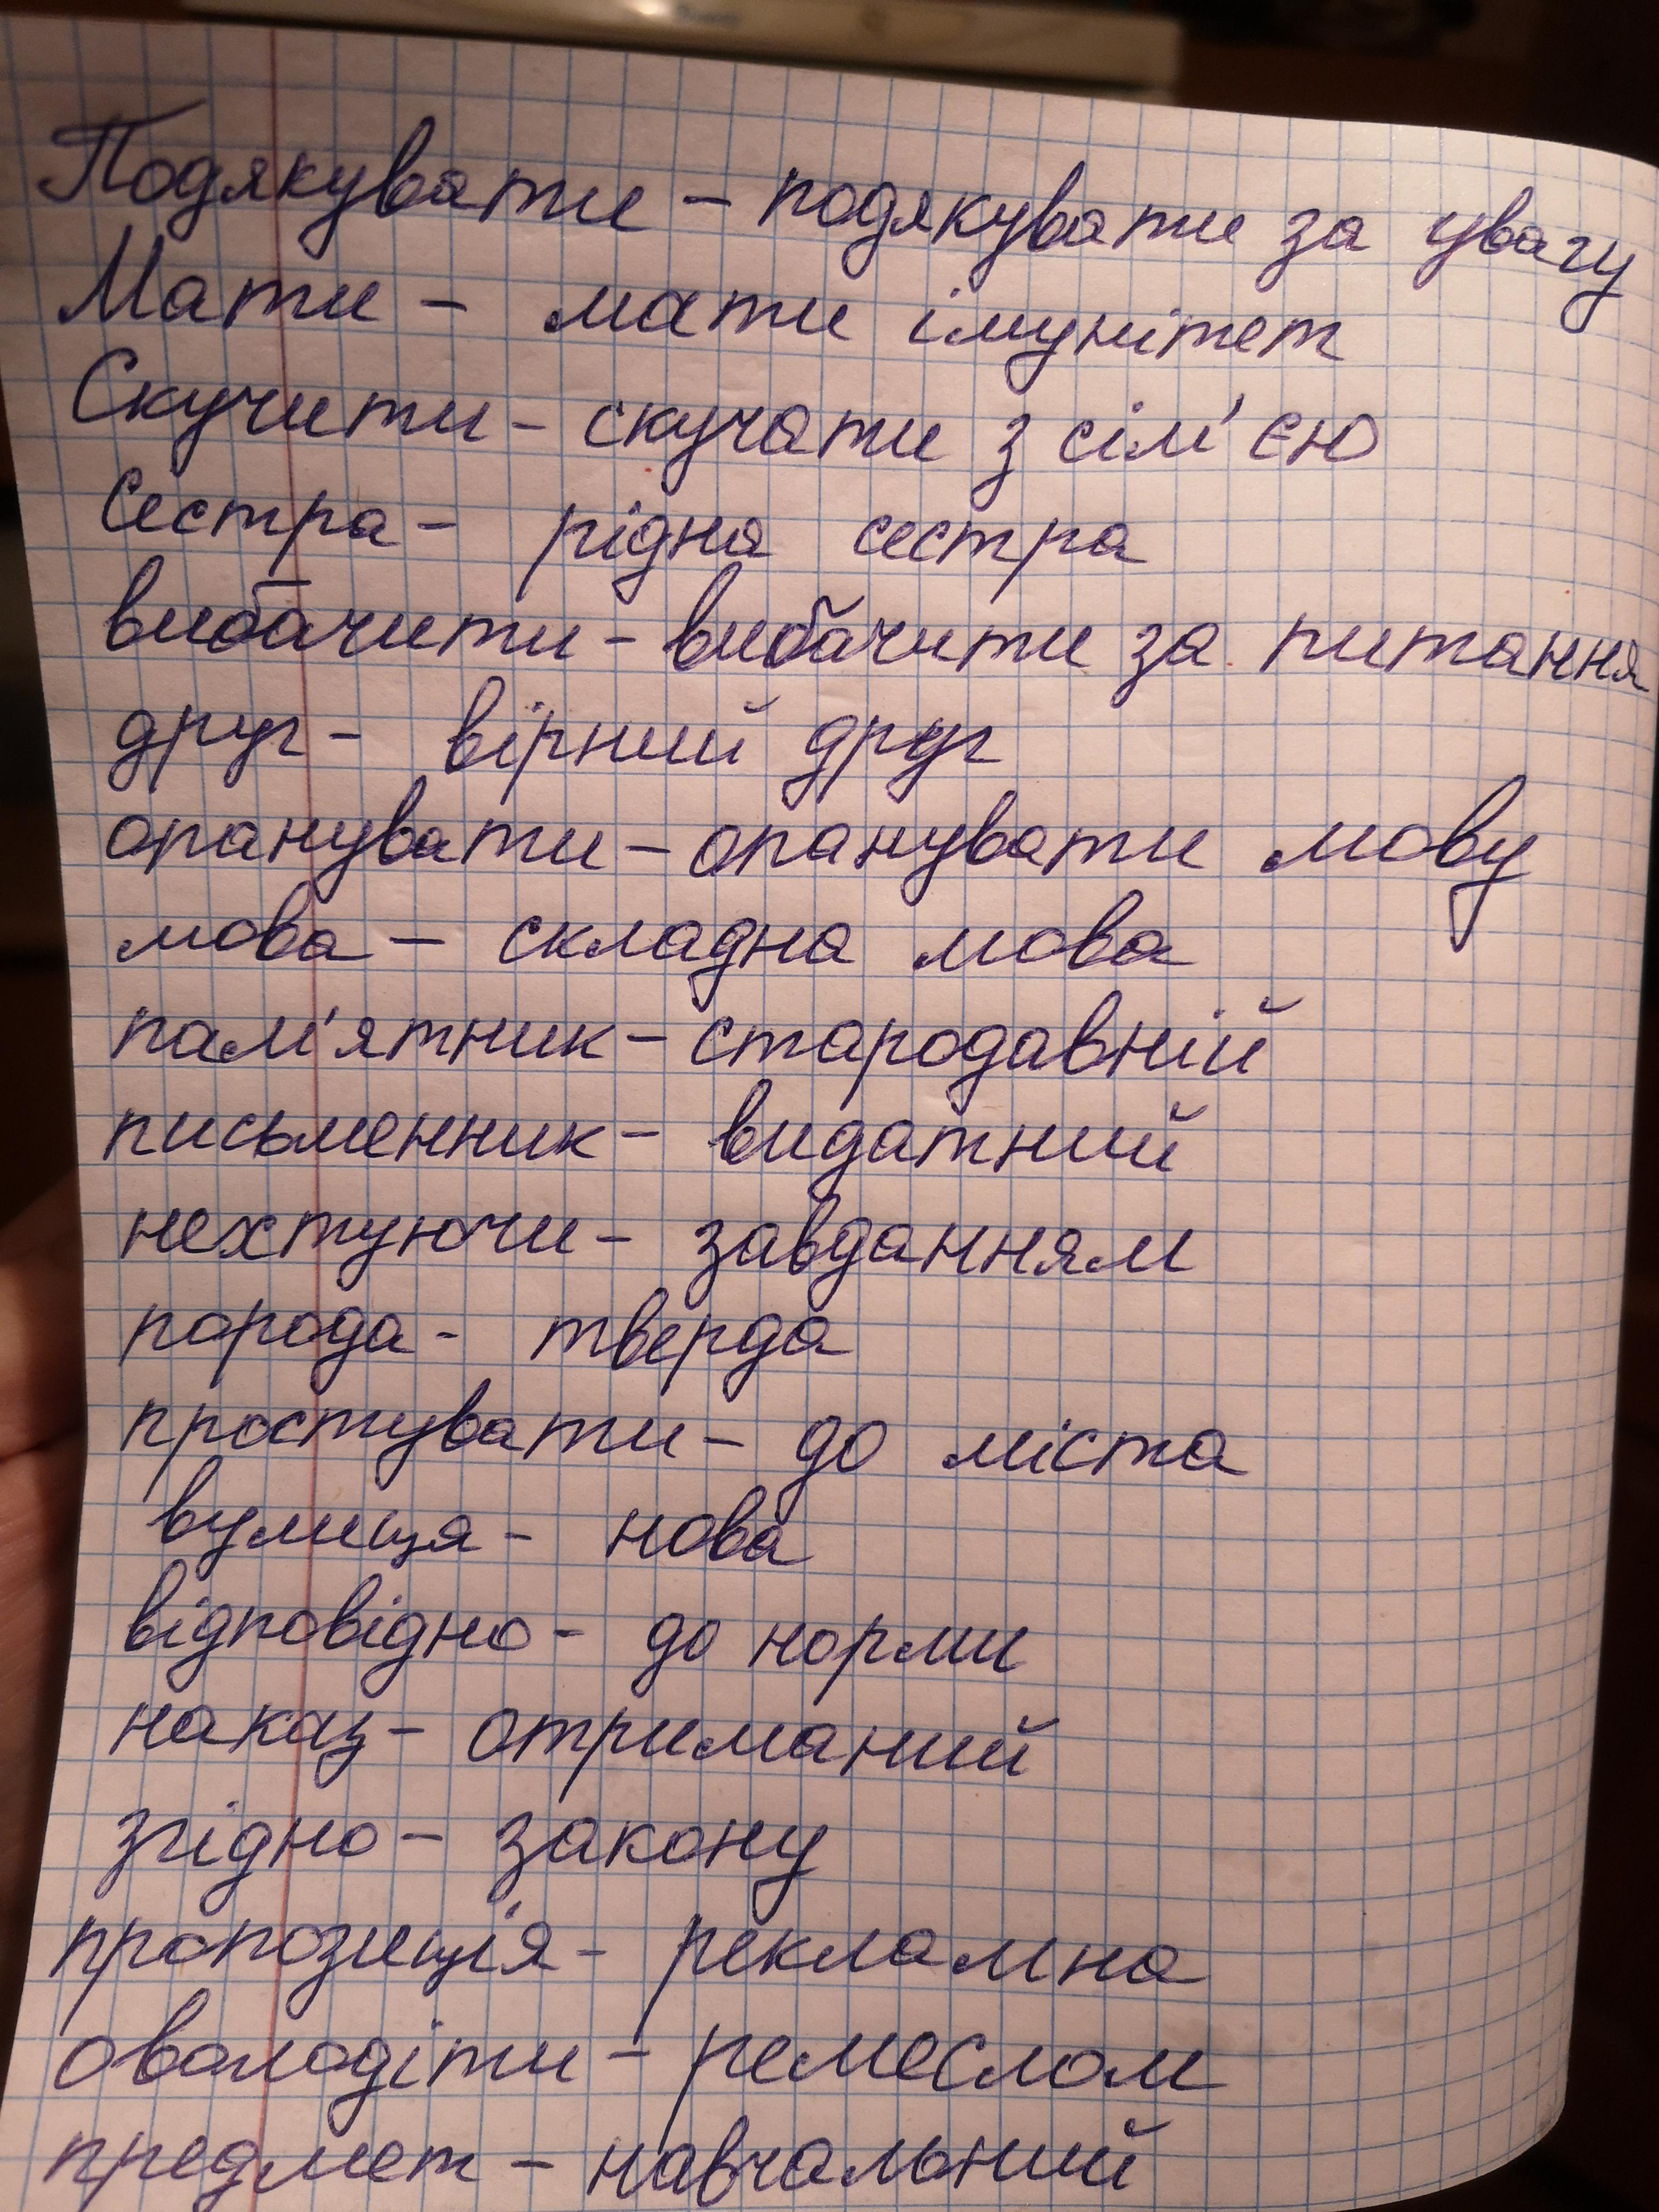 Подякувати – подякувати за увагу
Мати – мати імунітет
Скучити – скучати з сім'єю
Сестра – рідна сестра
вибачити – вибачити за питання
друг – вірний друг
опанувати – опанувати мову
мова – складна мова
пам'ятник – стародавній
письменник – видатний
нехтуючи – завданням
порода – тверда
простувати – до міста
вулиця – нова
відповідно – до норми
наказ – отриманий
згідно – закону
пропозиція – рекламна
оволодіти – ремеслом
предмет – навчальний